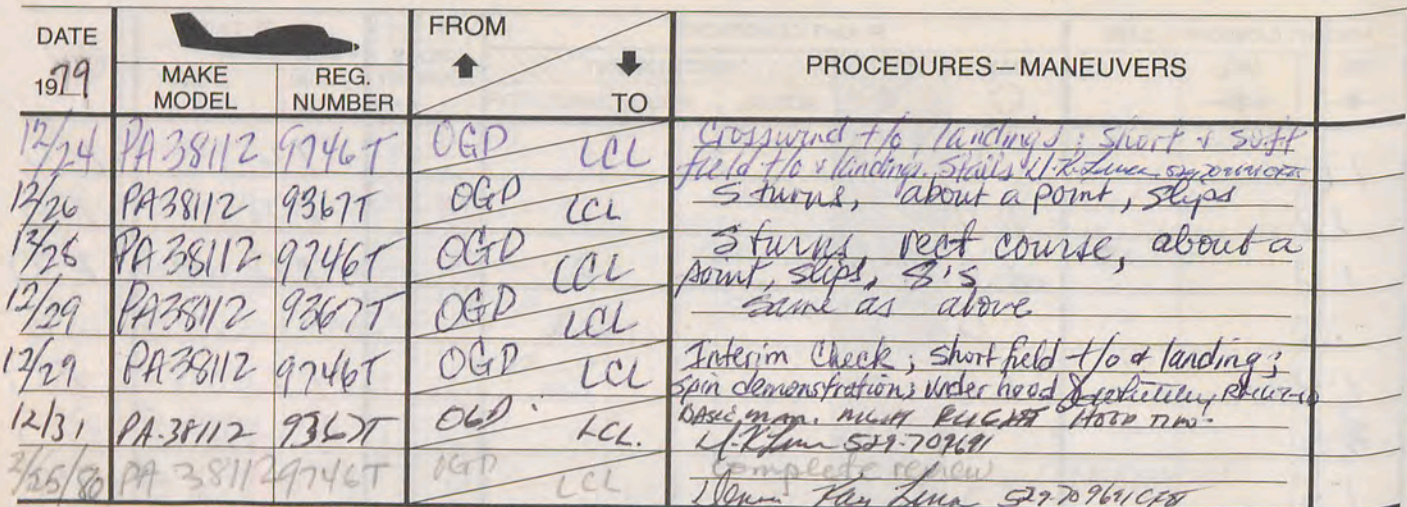 DATE
1979
MAKE MODEL
REG. NUMBER
FROM
TO
PROCEDURES—MANEUVERS
12/24 PA38112 9746T OGD LCL Crosswind t/o, landings; short & soft
field t/o & landing. Stalls
12/26 PA38112 9367T OGD LCL S turns, about a point, slips
12/28 PA38112 9746T OGD LCL S turns, rect course, about a
point, slips, 8's
12/29 PA38112 9367T OGD LCL same as above
12/29 PA38112 9746T OGD LCL Interim Check; short field t/o & landing;
spin demonstration; under hood
12/31 PA-38112 9367T OGD. LCL. Basic man. night flight hood time.
529-709691
2/25/80 PA 38112 9746T OGD LCL complete review
Ray 529709691CFI